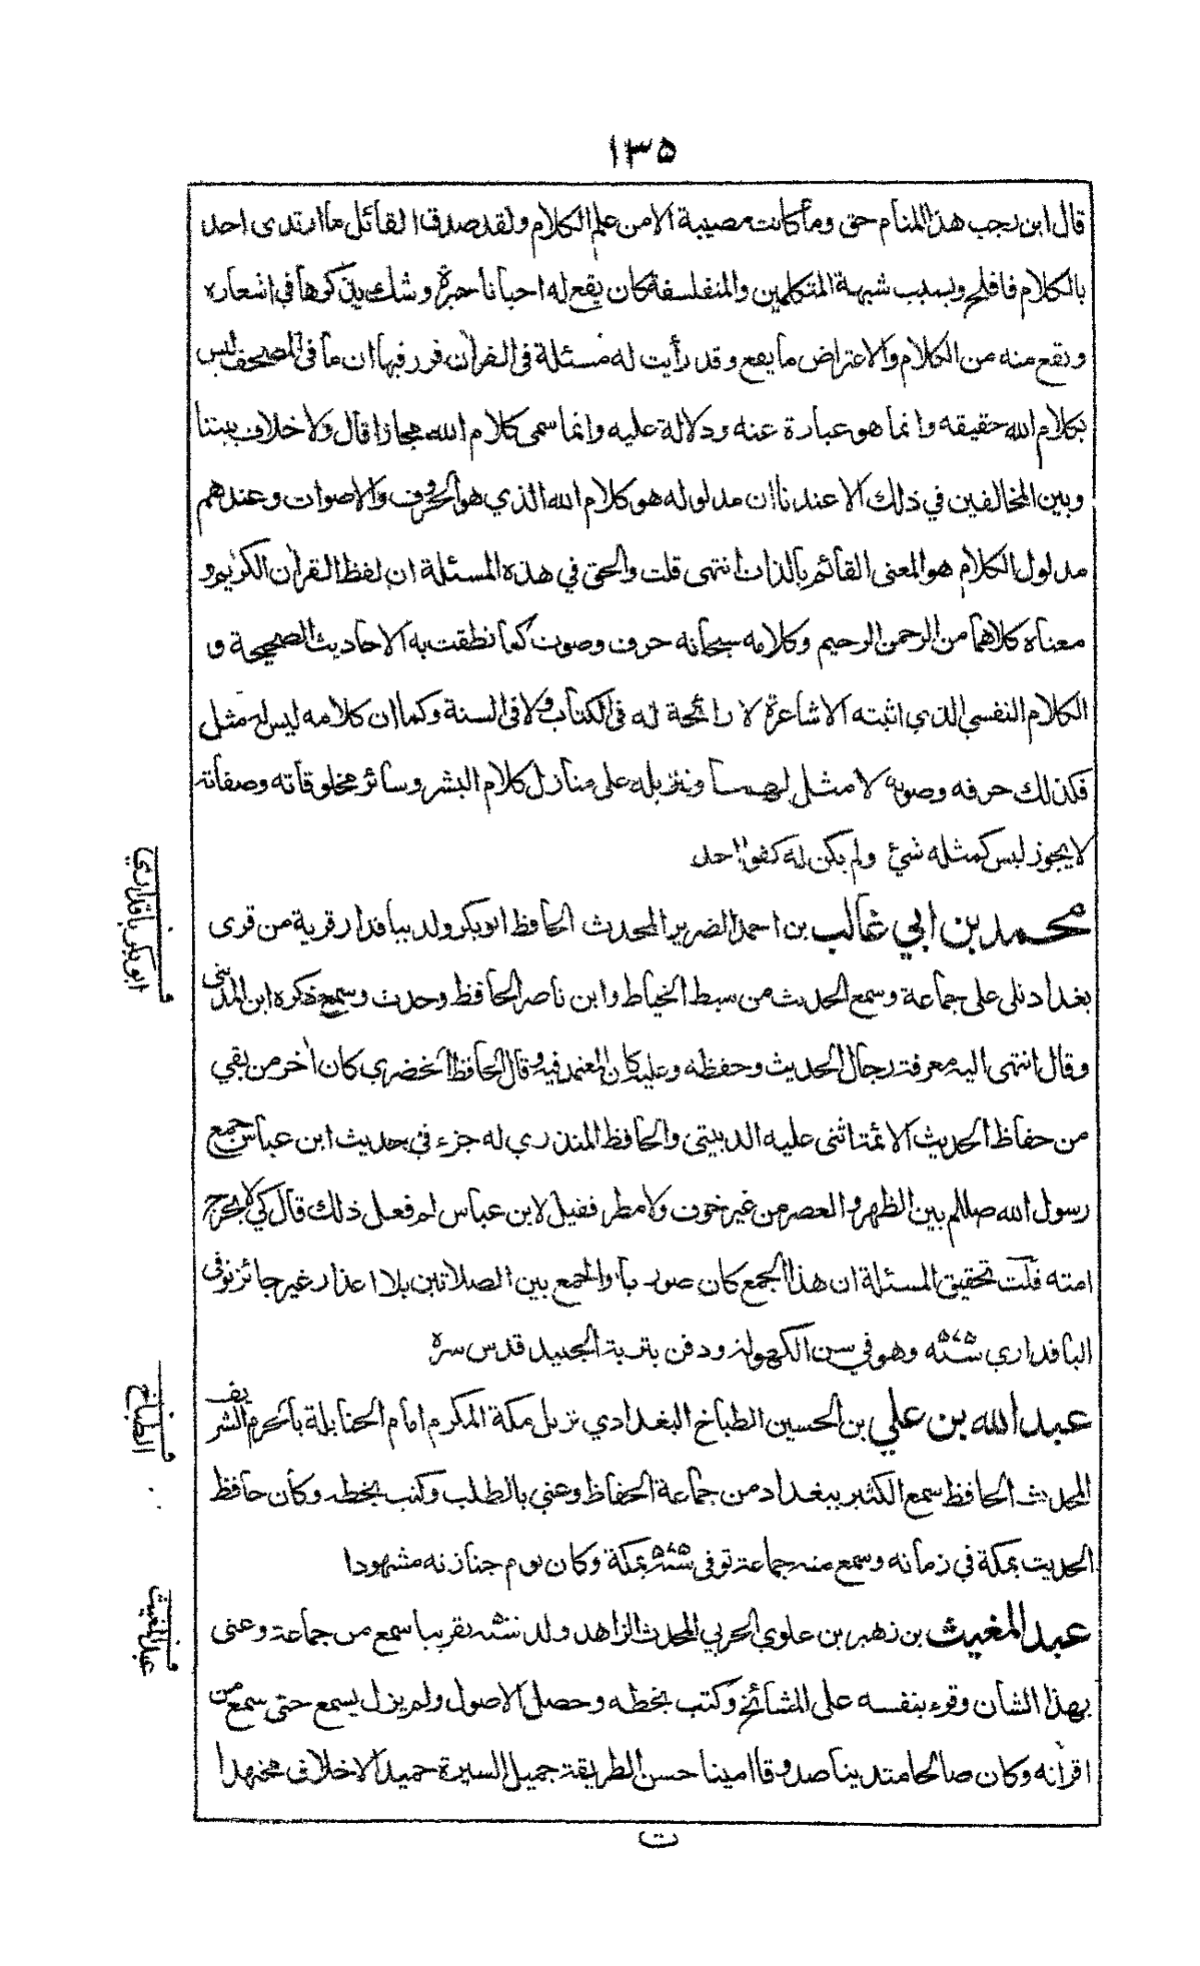 ١٣٥
قال ابن رجب هذا المنام حق وما كانت مصيبة الا من علم الكلام ولقد صدق القائل ما ارتدى احد
بالكلام فافلح وبسبب شبهة المتكلمين والمتفلسفة كان يقع له احيانا حيرة وشك يذكرها في اشعاره
وتقع منه من الكلام والاعتراض ما يقع وقد رأيت له مسئلة في القرآن قرر فيها ان ما في المصحف ليس
بكلام الله حقيقه وانما هو عبارة عنه ودلالة عليه وانما سمى كلام الله مجازا قال ولا خلاف بيننا
وبين المخالفين في ذلك الا عندنا ان مدلوله هو كلام الله الذي هو الحروف والاصوات وعندهم
مدلول الكلام هو المعنى القائم بالذات انتهى قلت والحق في هذه المسئلة ان لفظ القرآن الكريم و
معناه كلاهما من الرحمن الرحيم وكلامه سبحانه حرف وصوت كما نطقت به الاحاديث الصحيحة و
الكلام النفسي الذي اثبته الاشاعرة لا رائحة له في الكتاب ولا في السنة وكما ان كلامه ليس له مثل
فكذلك حرفه وصوته لا مثل لهما وتنزيله على منازل كلام البشر وسائر مخلوقاته وصفاته
لا يجوز ليس كمثله شئ ولم يكن له كفوا احد
محمد بن ابي غالب بن احمد الضرير المحدث الحافظ ابوبكر ولد بباقدار قرية من قرى
بغداد تلى على جماعة وسمع الحديث من سبط الخياط وابن ناصر الحافظ وحدث وسمع ذكره ابن المدينى
وقال انتهى اليه معرفة رجال الحديث وحفظه وعليه كان المعتمد فيه وقال الحافظ الحضري كان اخر من بقي
من حفاظ الحديث الائمة اثنى عليه الدبيثى والحافظ المنذري له جزء في حديث ابن عباس جمع
رسول الله صللم بين الظهر والعصر من غير خوف ولا مطر فقيل لابن عباس لم فعل ذلك قال كي لا يحرج
امته قلت تحقيق المسئلة ان هذا الجمع كان صوريا والجمع بين الصلاتين بلا اعذار غير جائز توفى
الباقداري ٥٧٥ سنه وهو في سن الكهولة ودفن بتربة الجنيد قدس سره
عبد الله بن علي بن الحسين الطباخ البغدادي نزيل مكة المكرم امام الحنابلة بالحرم الشريف
المحدث الحافظ سمع الكثير ببغداد من جماعة الحفاظ وعني بالطلب وكتب بخطه وكان حافظ
الحديث بمكة في زمانه وسمع منه جماعة توفى ٥٧٥ سنه بمكة وكان يوم جنازته مشهودا
عبد المغيث بن زهير بن علوي الحربي المحدث الزاهد ولد سنه تقريبا سمع من جماعة وعنى
بهذا الشأن وقرء بنفسه على المشائخ وكتب بخطه وحصل الاصول ولم يزل يسمع حتى سمع من
اقرانه وكان صالحا متدينا صدوقا امينا حسن الطريقة جميل السيرة حميد الاخلاق مجتهدا
ت
ابوبكر باقداري
الطباخ
عبد المغيث